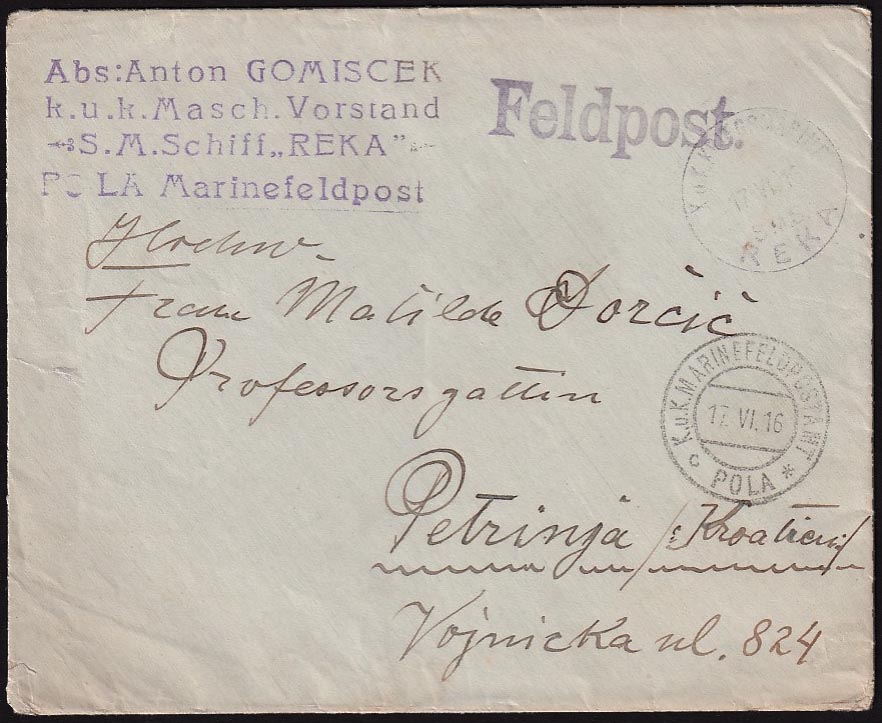 Abs:Anton GOMISCEK
k.u.k.Masch.Vorstand
S.M.Schiff„REKA”
POLA Marinefeldpost
Feldpost.
17 VI 16
S.M.S.
REKA
Hochw.
Frau Matilde Dorčić
Professorsgattin
K.u.K.MARINEFELDPOSTAMT
17. VI. 16
c POLA *
Petrinja /:Kroatien:/
Vojnicka ul. 824